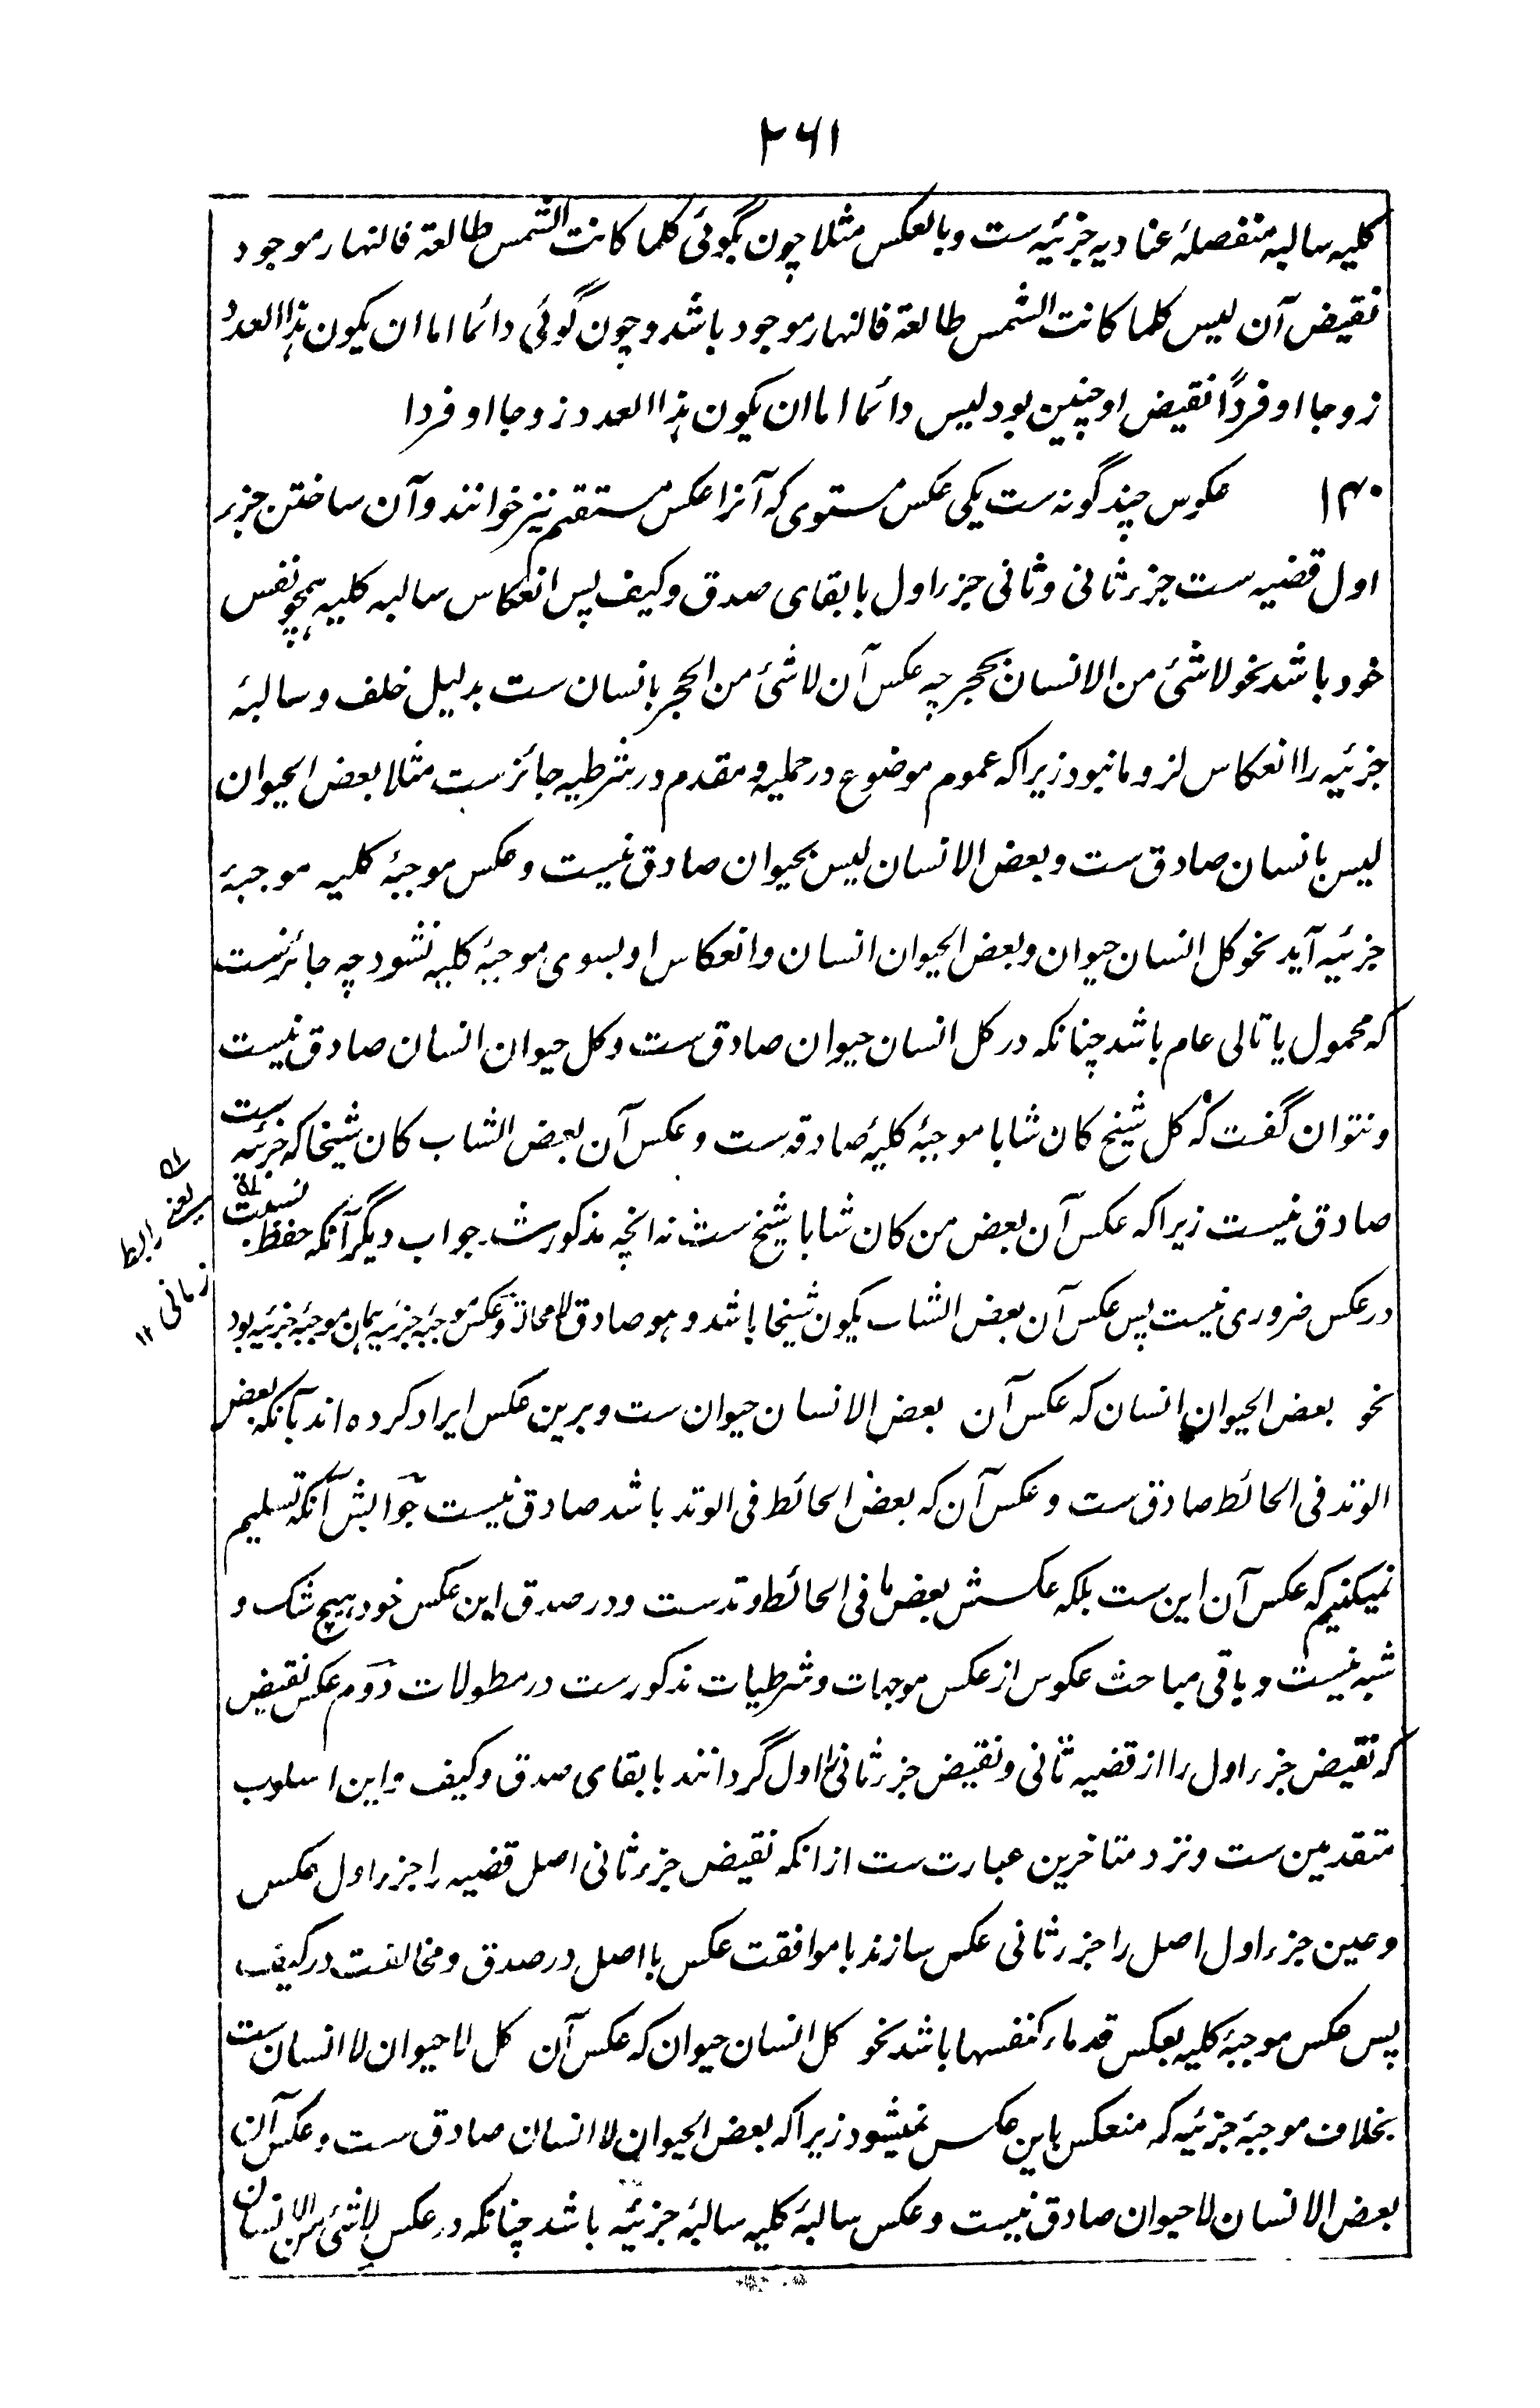 ۲۶۱
کلیه سالبه منفصلهٔ عنادیه جزئیه ست وبالعکس مثلا چون بگوئی کلما کانت الشمس طالعة فالنهار موجود
نقیض آن لیس کلما کانت الشمس طالعة فالنهار موجود باشد وچون گوئی دائما اما ان یکون هذا العدد
زوجا او فرداً نقیض او چنین بود لیس دائما اما ان یکون هذا العدد زوجا او فردا
عکوس چند گونه ست یکی عکس مستوی که آنرا عکس مستقیم نیز خوانند وآن ساختن جزء
اول قضیه ست جزء ثانی وثانی جزء اول با بقای صدق وکیف پس انعکاس سالبه کلیه همچو نفس
خود باشد نحو لاشئ من الانسان بحجر چه عکس آن لاشئ من الحجر بانسان ست بدلیل خلف وسالبهٔ
جزئیه را انعکاس لزوما نبود زیراکه عموم موضوع در حملیه ومقدم در شرطیه جائز ست مثلا بعض الحیوان
لیس بانسان صادق ست وبعض الانسان لیس بحیوان صادق نیست وعکس موجبهٔ کلیه موجبهٔ
جزئیه آید نحو کل انسان حیوان وبعض الحیوان انسان وانعکاس او بسوی موجبهٔ کلیه نشود چه جائزست
که محمول یا تالی عام باشد چنانکه در کل انسان حیوان صادق ست وکل حیوان انسان صادق نیست
ونتوان گفت که کل شیخ کان شابا موجبهٔ کلیهٔ صادقه ست وعکس آن بعض الشاب کان شیخا که جزئیه ست
صادق نیست زیراکه عکس آن بعض من کان شابا شیخ ست نه انچه مذکور شد جواب دیگر آنکه حفظ نسبت
یعنے رابط
زمانی ۱۲
در عکس ضروری نیست پس عکس آن بعض الشاب یکون شیخا باشد وهو صادق لا محالة وعکس موجبهٔ جزئیه همان موجبهٔ جزئیه بود
نحو بعض الحیوان انسان که عکس آن بعض الانسان حیوان ست وبرین عکس ایراد کرده اند بآنکه بعض
الوتد فی الحائط صادق ست وعکس آن که بعض الحائط فی الوتد باشد صادق نیست جوابش آنکه تسلیم
نمیکنیم که عکس آن این ست بلکه عکسش بعض ما فی الحائط وتدست ودر صدق این عکس خود هیچ شک و
شبه نیست وباقی مباحث عکوس از عکس موجهات وشرطیات مذکورست در مطولات دوم عکس نقیض
که نقیض جزء اول را از قضیه ثانی ونقیض جزء ثانی را اول گردانند با بقای صدق وکیف واین اسلوب
متقدمین ست ونزد متاخرین عبارت ست از انکه نقیض جزء ثانی اصل قضیه را جزء اول عکس
وعین جزء اول اصل را جزء ثانی عکس سازند با موافقت عکس با اصل در صدق ومخالفت در کیف
پس عکس موجبهٔ کلیه بعکس قدماء کنفسها باشد نحو کل انسان حیوان که عکس آن کل لا حیوان لا انسان ست
بخلاف موجبهٔ جزئیه که منعکس باین عکس نمیشود زیراکه بعض الحیوان لا انسان صادق ست وعکس آن
بعض الانسان لا حیوان صادق نیست وعکس سالبهٔ کلیه سالبهٔ جزئیه باشد چنانکه در عکس لاشئ من الانسان